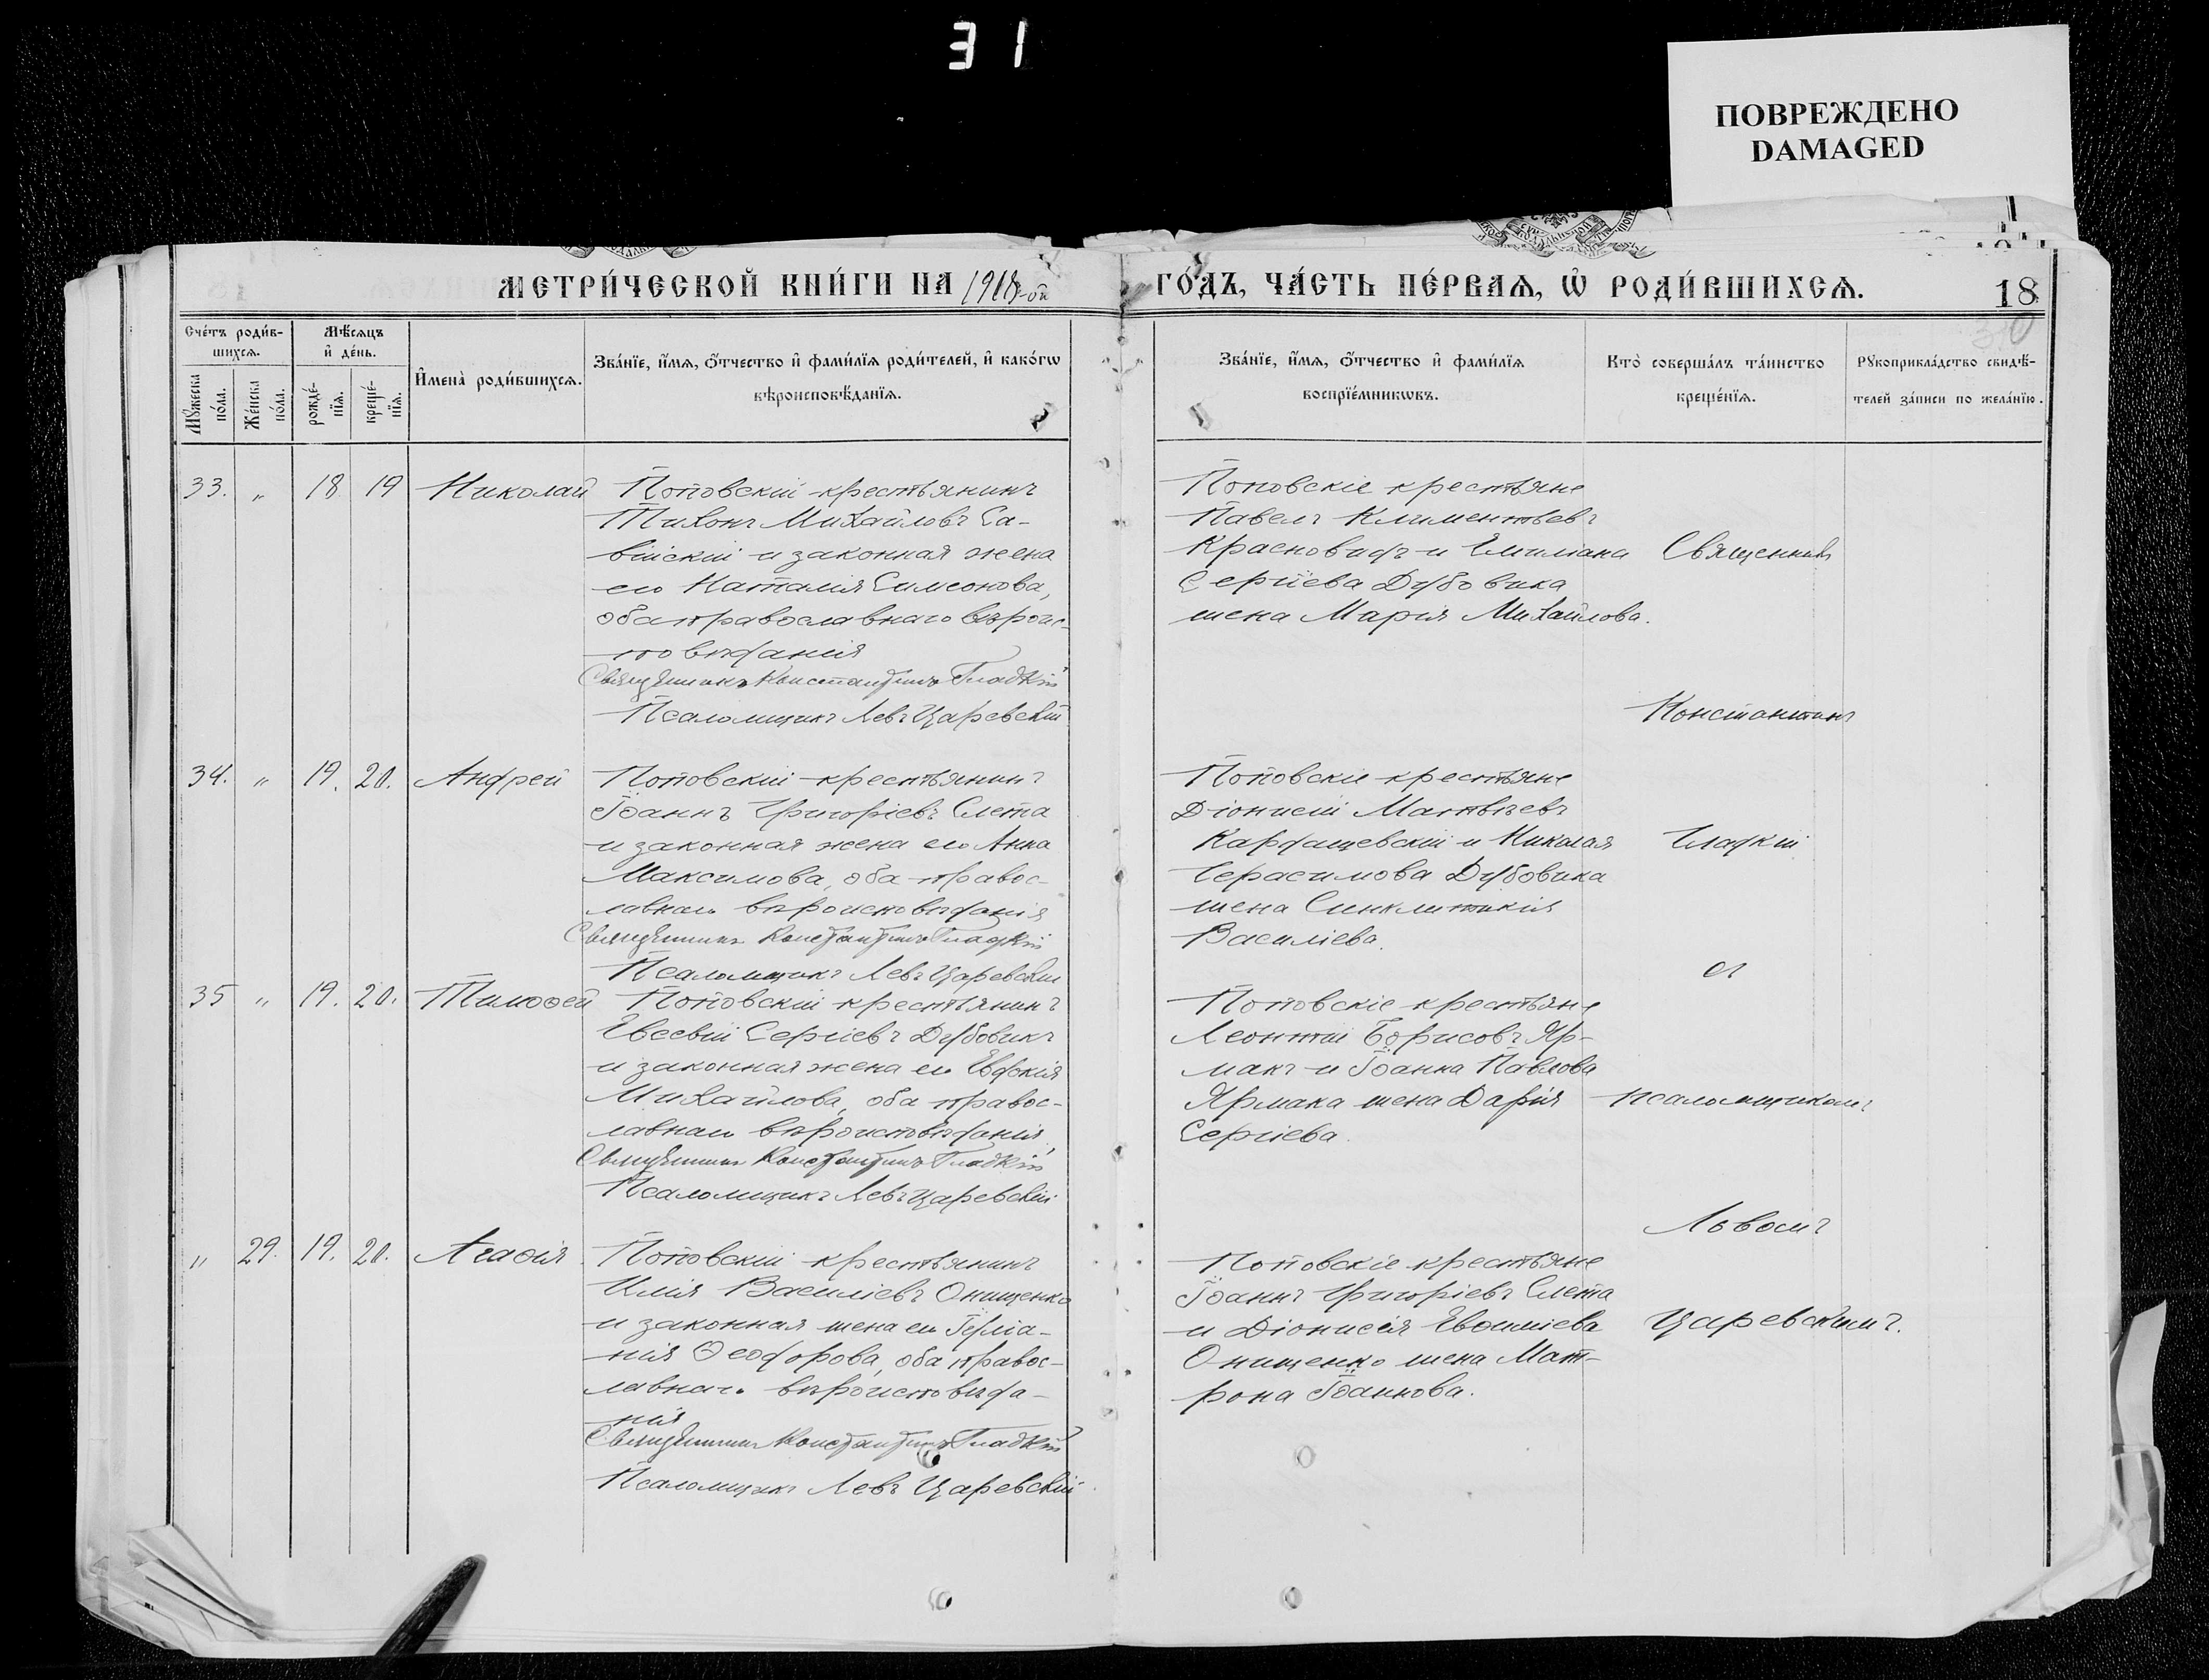 31
ПОВРЕЖДЕНО
DAMAGED
МЕТРИ́ЧЕСКОЙ КНИ́ГИ НА 1918-ой ГО́ДЪ, ЧА́СТЬ ПЕ́РВАѦ, Ѡ҆ РОДИ́ВШИХСѦ.
18
Сче́тъ роди́в-
шихсѧ.
Мѣ́сѧцъ
и҆ де́нь.
Мꙋ́жеска
по́ла.
Же́нска
по́ла.
рожде́-
нїѧ.
креще́-
нїѧ.
И҆мена̀ роди́вшихсѧ.
Зва́нїе, и҆́мѧ, ѻ҆́тчество и҆ фами́лїѧ роди́телей, и҆ како́гѡ
вѣроисповѣ́данїѧ.
Зва́нїе, и҆́мѧ, ѻ҆́тчество и҆ фами́лїѧ
воспрїе́мникѡвъ.
Кто̀ соверша́лъ та́инство
креще́нїѧ.
Рꙋкоприкла́дство свидѣ́-
телей за́писи по жела́нїю.
33. " 18 19 Николай
Поповскій крестьянинъ
Тихонъ Михайловъ Са-
війскій и законная жена
его Наталія Симеонова,
оба православнаго вѣроис-
повѣданія
Священникъ Константинъ Гладкій
Псаломщикъ Левъ Царевскій
Поповскіе крестьяне
Павелъ Климентьевъ
Красновидъ и Емиліана
Сергіева Дубовика
жена Марія Михайлова.
Священникъ
Константинъ
34. " 19. 20. Андрей
Поповскій крестьянинъ
Іоаннъ Григоріевъ Слета
и законная жена его Анна
Максимова, оба правос-
лавнаго вѣроисповѣданія
Священникъ Константинъ Гладкій
Псаломщикъ Левъ Царевскій
Поповскіе крестьяне
Діонисій Матвѣевъ
Кардашевскій и Николая
Герасимова Дубовика
жена Синклитикія
Василіева.
Гладкій
съ
35 " 19. 20. Тимоѳей
Поповскій крестьянинъ
Евсевій Сергіевъ Дубовикъ
и законная жена его Евдокія
Михайлова, оба правос-
лавнаго вѣроисповѣданія,
Священникъ Константинъ Гладкій
Псаломщикъ Левъ Царевскій
Поповскіе крестьяне
Леонтій Борисовъ Яр-
макъ и Іоанна Павлова
Ярмака жена Дарія
Сергіева.
псаломщикомъ
Львомъ
" 29. 19. 20. Агаѳія
Поповскій крестьянинъ
Илія Василіевъ Онищенко
и законная жена его
Ѳеодорова, оба правос-
лавнаго вѣроисповѣда-
нія
Священникъ Константинъ Гладкій
Псаломщикъ Левъ Царевскій
Поповскіе крестьяне
Іоаннъ Григоріевъ Слета
и Діонисія
Онищенко жена Мат-
рона Іоаннова.
Царевскимъ.